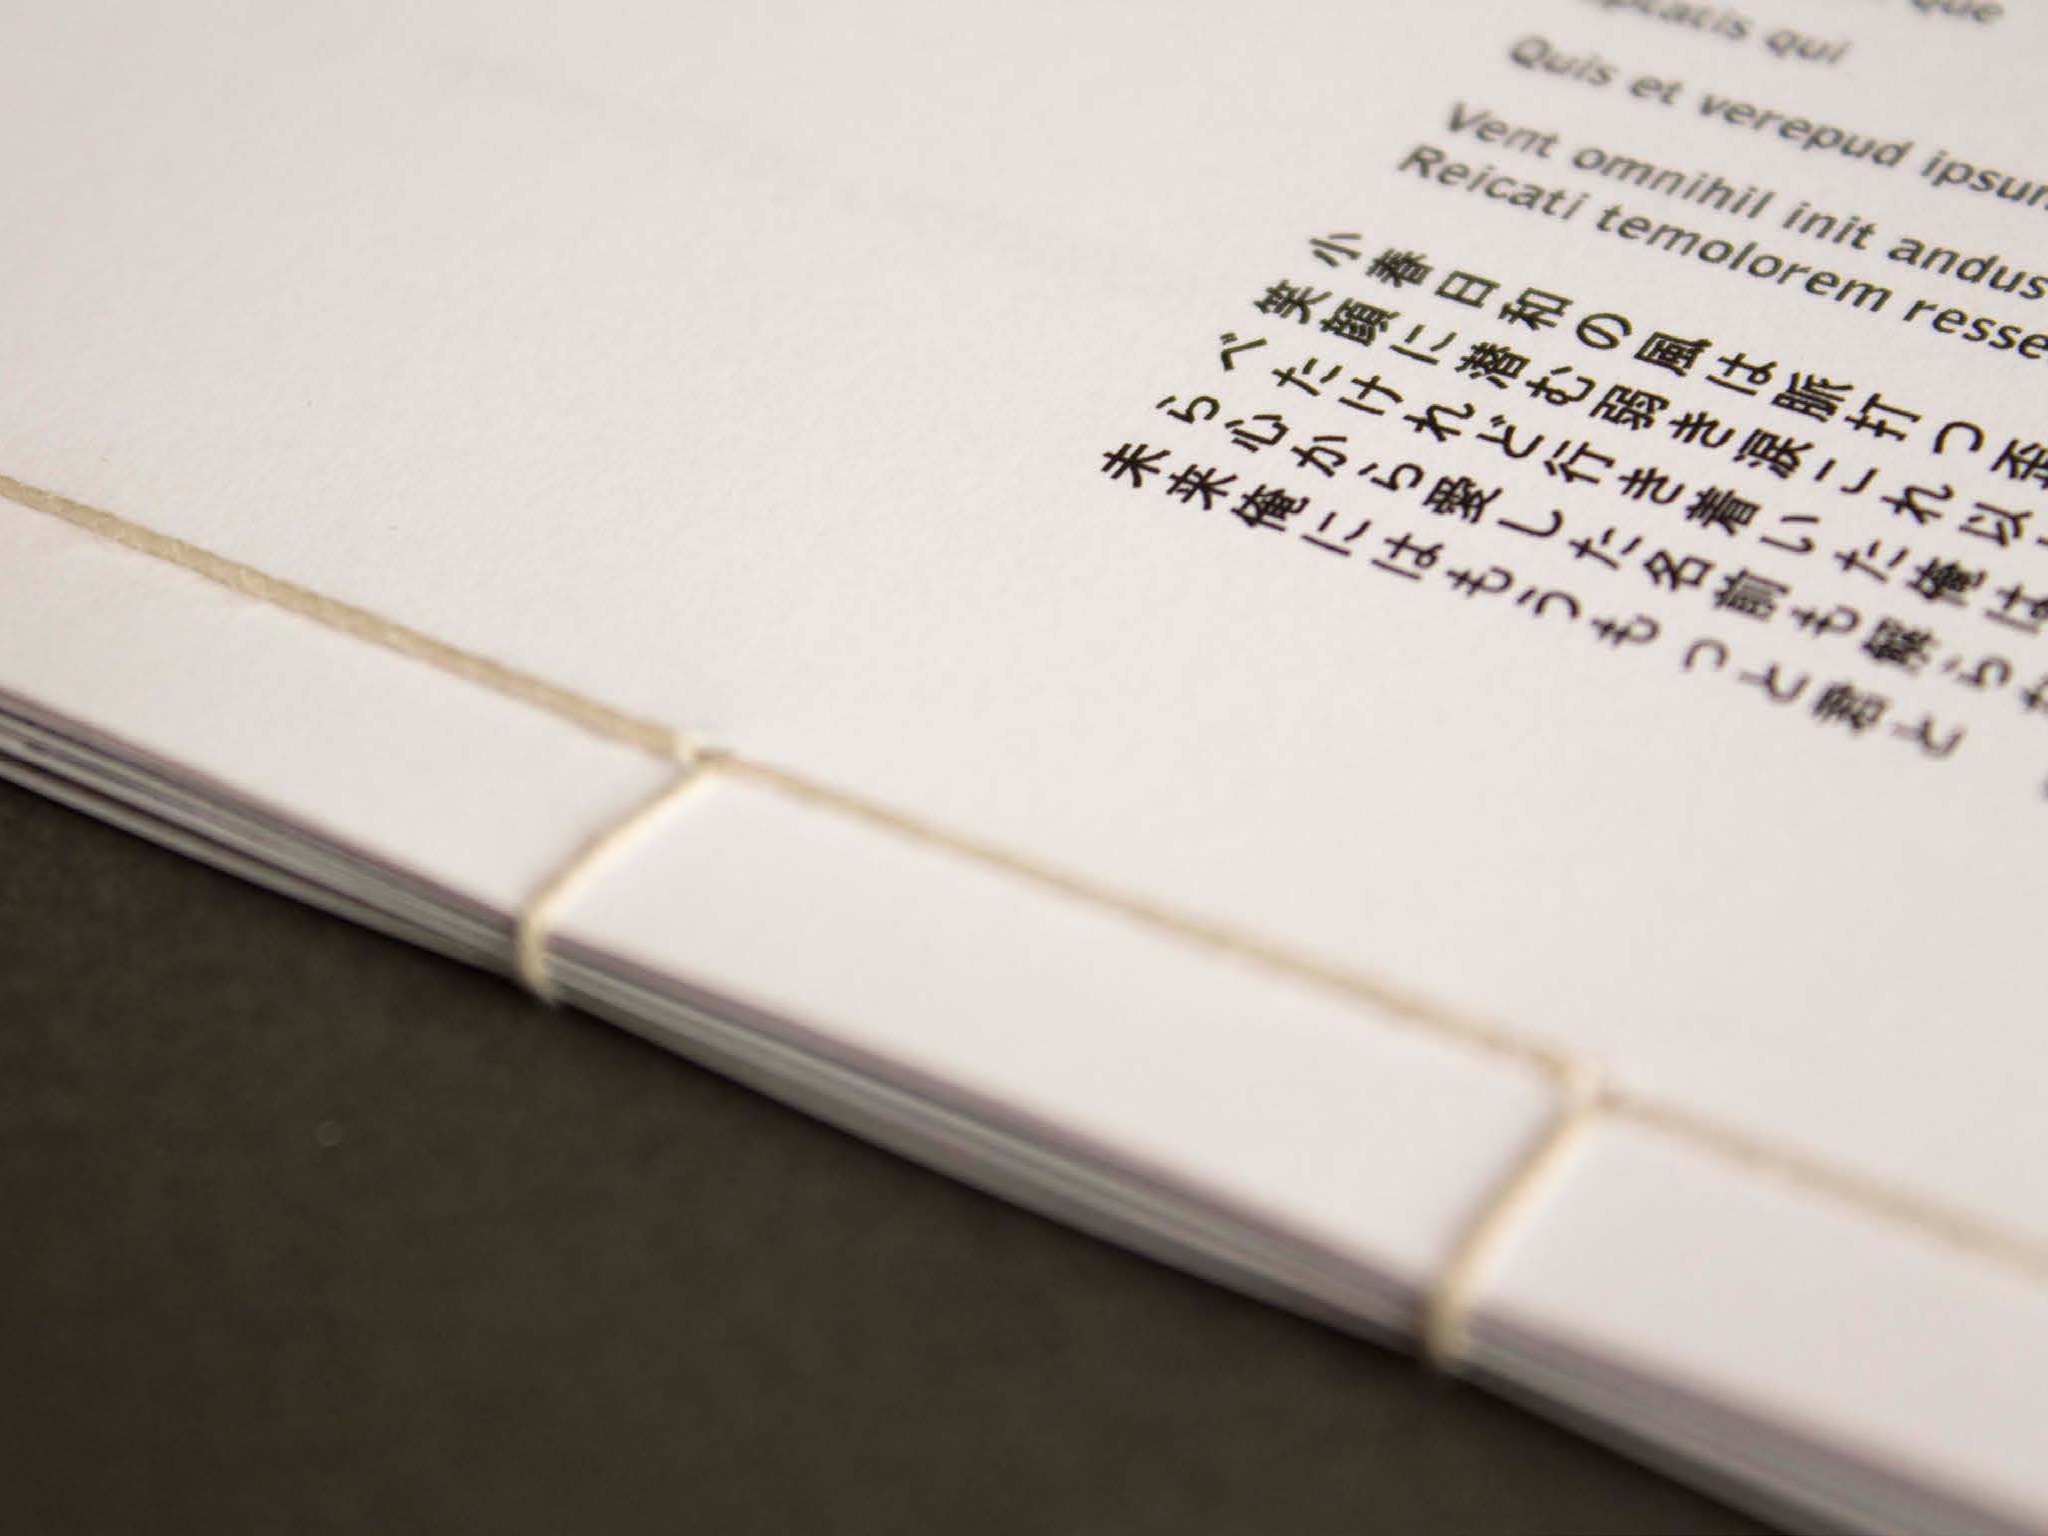 que
qui
Quis et verepud ipsum
Vent omnihil init andus
Reicati temolorem resse
小春日和の風は脈打つ歪
笑顔に潜む弱き涙これ以
べたけれど行き着いた俺は
ら心から愛した名前も無らな
未来俺にはもうもっと君と